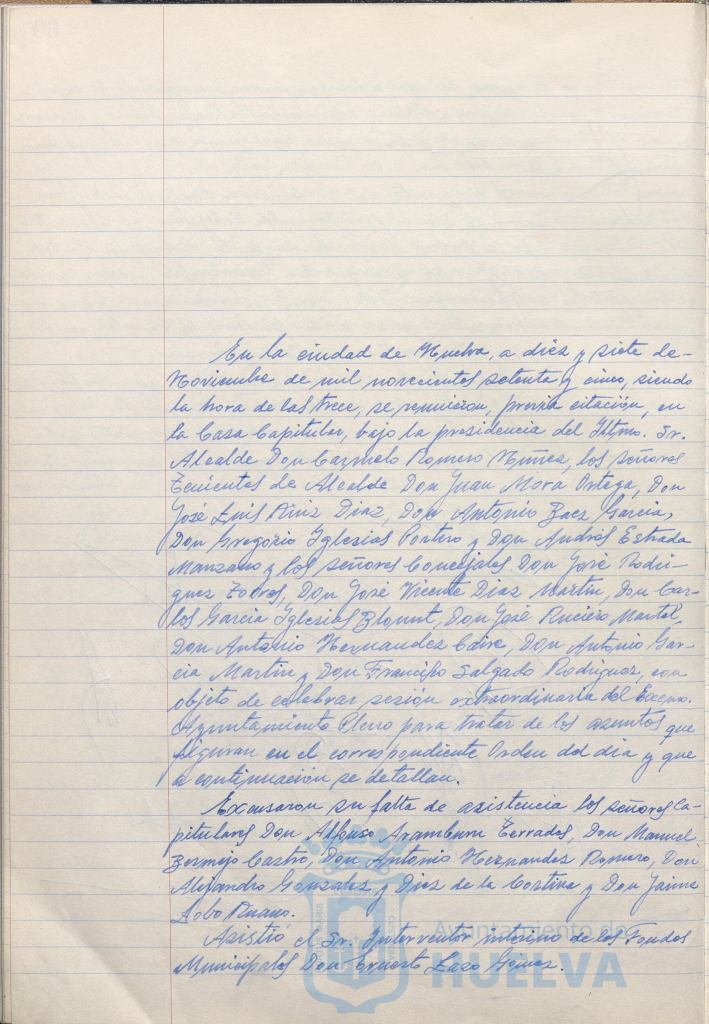 En la ciudad de Huelva, a diez y siete de-
Noviembre de mil novecientos setenta y cinco, siendo
la hora de las trece, se reunieron, previa citación, en
la Casa Capitular, bajo la presidencia del Iltmo. Sr.
Alcalde Don Carmelo Romero Núñez, los señores
Tenientes de Alcalde Don Juan Mora Ortega, Don
José Luis Ruiz Diaz, Don Antonio Baez Garcia,
Don Gregorio Iglesias Portero y Don Andrés Estrada
Manzano y los señores Concejales Don José Rodri-
guez Torres, Don José Vicente Diaz Martin, Don Car-
los Garcia Iglesias Blount, Don José Ruciero Martel,
Don Antonio Hernandez Don Antonio Gar-
cia Martin y Don Francisco Salgado Rodriguez, con
objeto de celebrar sesión extraordinaria del Excmo.
Ayuntamiento Pleno para tratar de los asuntos que
figuran en el correspondiente Orden del dia y que
a continuación se detallan.
Excusaron su falta de asistencia los señores Ca-
pitulares Don Alfonso Aramburu Terrades, Don Manuel
Bermejo Castro, Don Antonio Hernandez Romero, Don
Alejandro Gonzalez y Diez de la Cortina y Don Jaime
Lobo
Asistió el Sr. Interventor interino de los Fondos
Municipales Don Ernesto Lazo Gomez.
Ayuntamiento de
HUELVA